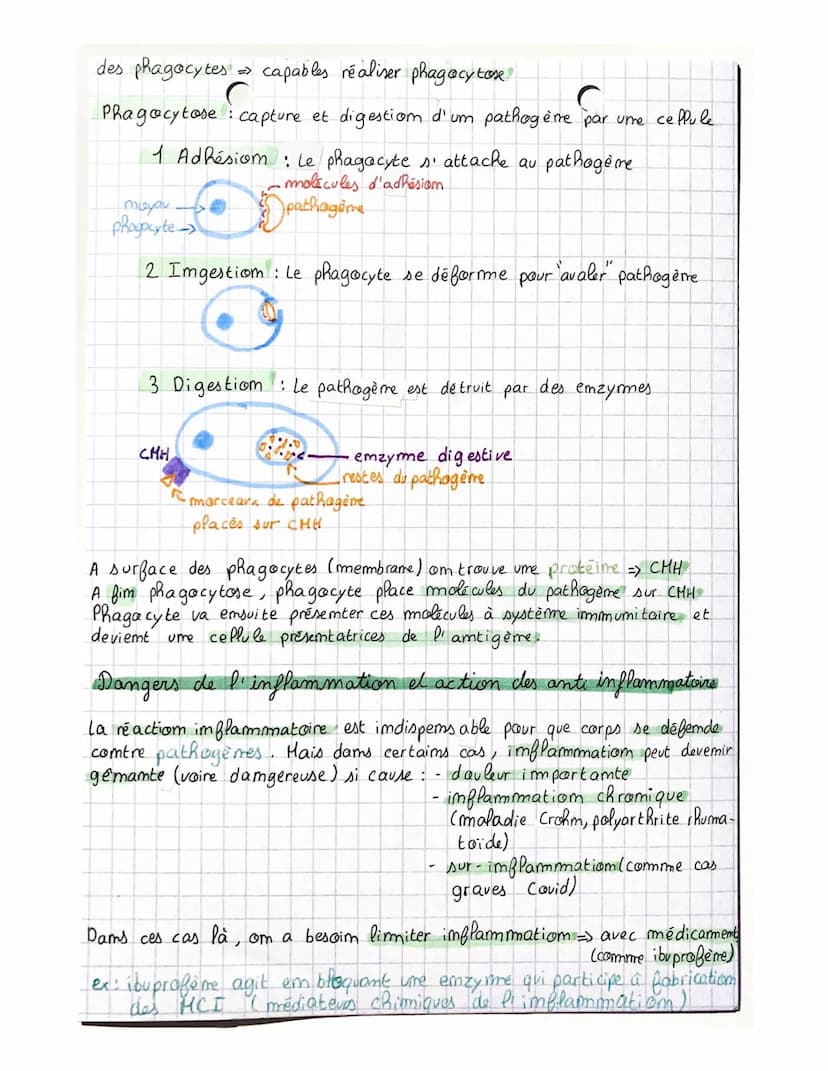 des phagocytes => capables réaliser phagocytose
Phagocytose : capture et digestion d'un pathogène par une cellule
1 Adhésion : Le phagocyte s'attache au pathogène
molécules d'adhésion
noyau
pathogène
phagocyte
2 Ingestion : Le phagocyte se déforme pour "avaler" pathogène
3 Digestion : Le pathogène est détruit par des enzymes
CMH
enzyme digestive
restes du pathogène
morceaux de pathogène
placés sur CMH
A surface des phagocytes (membrane) on trouve une protéine => CMH
A fin phagocytose, phagocyte place molécules du pathogène sur CMH
Phagocyte va ensuite présenter ces molécules à système immunitaire et
devient une cellule présentatrices de l'antigène.
Dangers de l'inflammation et action des anti inflammatoire
La réaction inflammatoire est indispensable pour que corps se défende
contre pathogènes. Mais dans certains cas, inflammation peut devenir
gênante (voire dangereuse) si cause : - douleur importante
- inflammation chronique
(maladie Crohn, polyarthrite rhuma-
toïde)
- sur-inflammation (comme cas
graves Covid)
Dans ces cas là, on a besoin limiter inflammation => avec médicament
(comme ibuprofène)
ex: ibuprofène agit en bloquant une enzyme qui participe à fabrication
des MCI (médiateurs chimiques de l'inflammation)